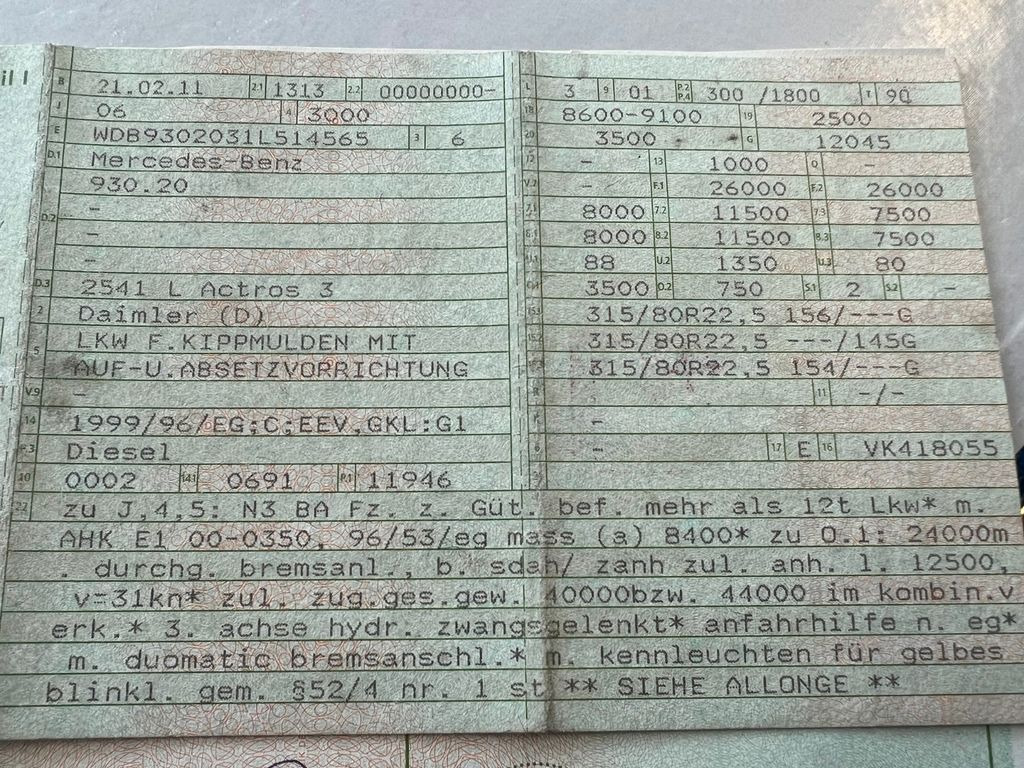 il I
B 21.02.11 2.1 1313 2.2 00000000-
J 06 4 3000
E WDB9302031L514565 3 6
D.1 Mercedes-Benz
930.20
D.2 -
-
-
D.3 2541 L Actros 3
2 Daimler (D)
5 LKW F.KIPPMULDEN MIT
AUF-U.ABSETZVORRICHTUNG
V.9 -
14 1999/96/EG;C;EEV,GKL:G1
P.3 Diesel
10 0002 14.1 0691 P.1 11946
L 3 9 01 P.2 P.4 300 /1800 T 90
18 8600-9100 19 2500
20 3500 G 12045
12 - 13 1000 Q -
V.7 - F.1 26000 F.2 26000
7.1 8000 7.2 11500 7.3 7500
8.1 8000 8.2 11500 8.3 7500
U.1 88 U.2 1350 U.3 80
O.1 3500 O.2 750 S.1 2 S.2 -
15.1 315/80R22,5 156/---G
15.2 315/80R22,5 ---/145G
15.3 315/80R22,5 154/---G
R 11 -/-
K -
6 - 17 E 16 VK418055
21
22 zu J,4,5: N3 BA Fz. z. Güt. bef. mehr als 12t Lkw* m.
AHK E1 00-0350, 96/53/eg mass (a) 8400* zu O.1: 24000m
. durchg. bremsanl., b. sdah/ zanh zul. anh. l. 12500,
v=31kn* zul. zug.ges.gew. 40000bzw. 44000 im kombin.v
erk.* 3. achse hydr. zwangsgelenkt* anfahrhilfe n. eg*
m. duomatic bremsanschl.* m. kennleuchten für gelbes
blinkl. gem. §52/4 nr. 1 st ** SIEHE ALLONGE **